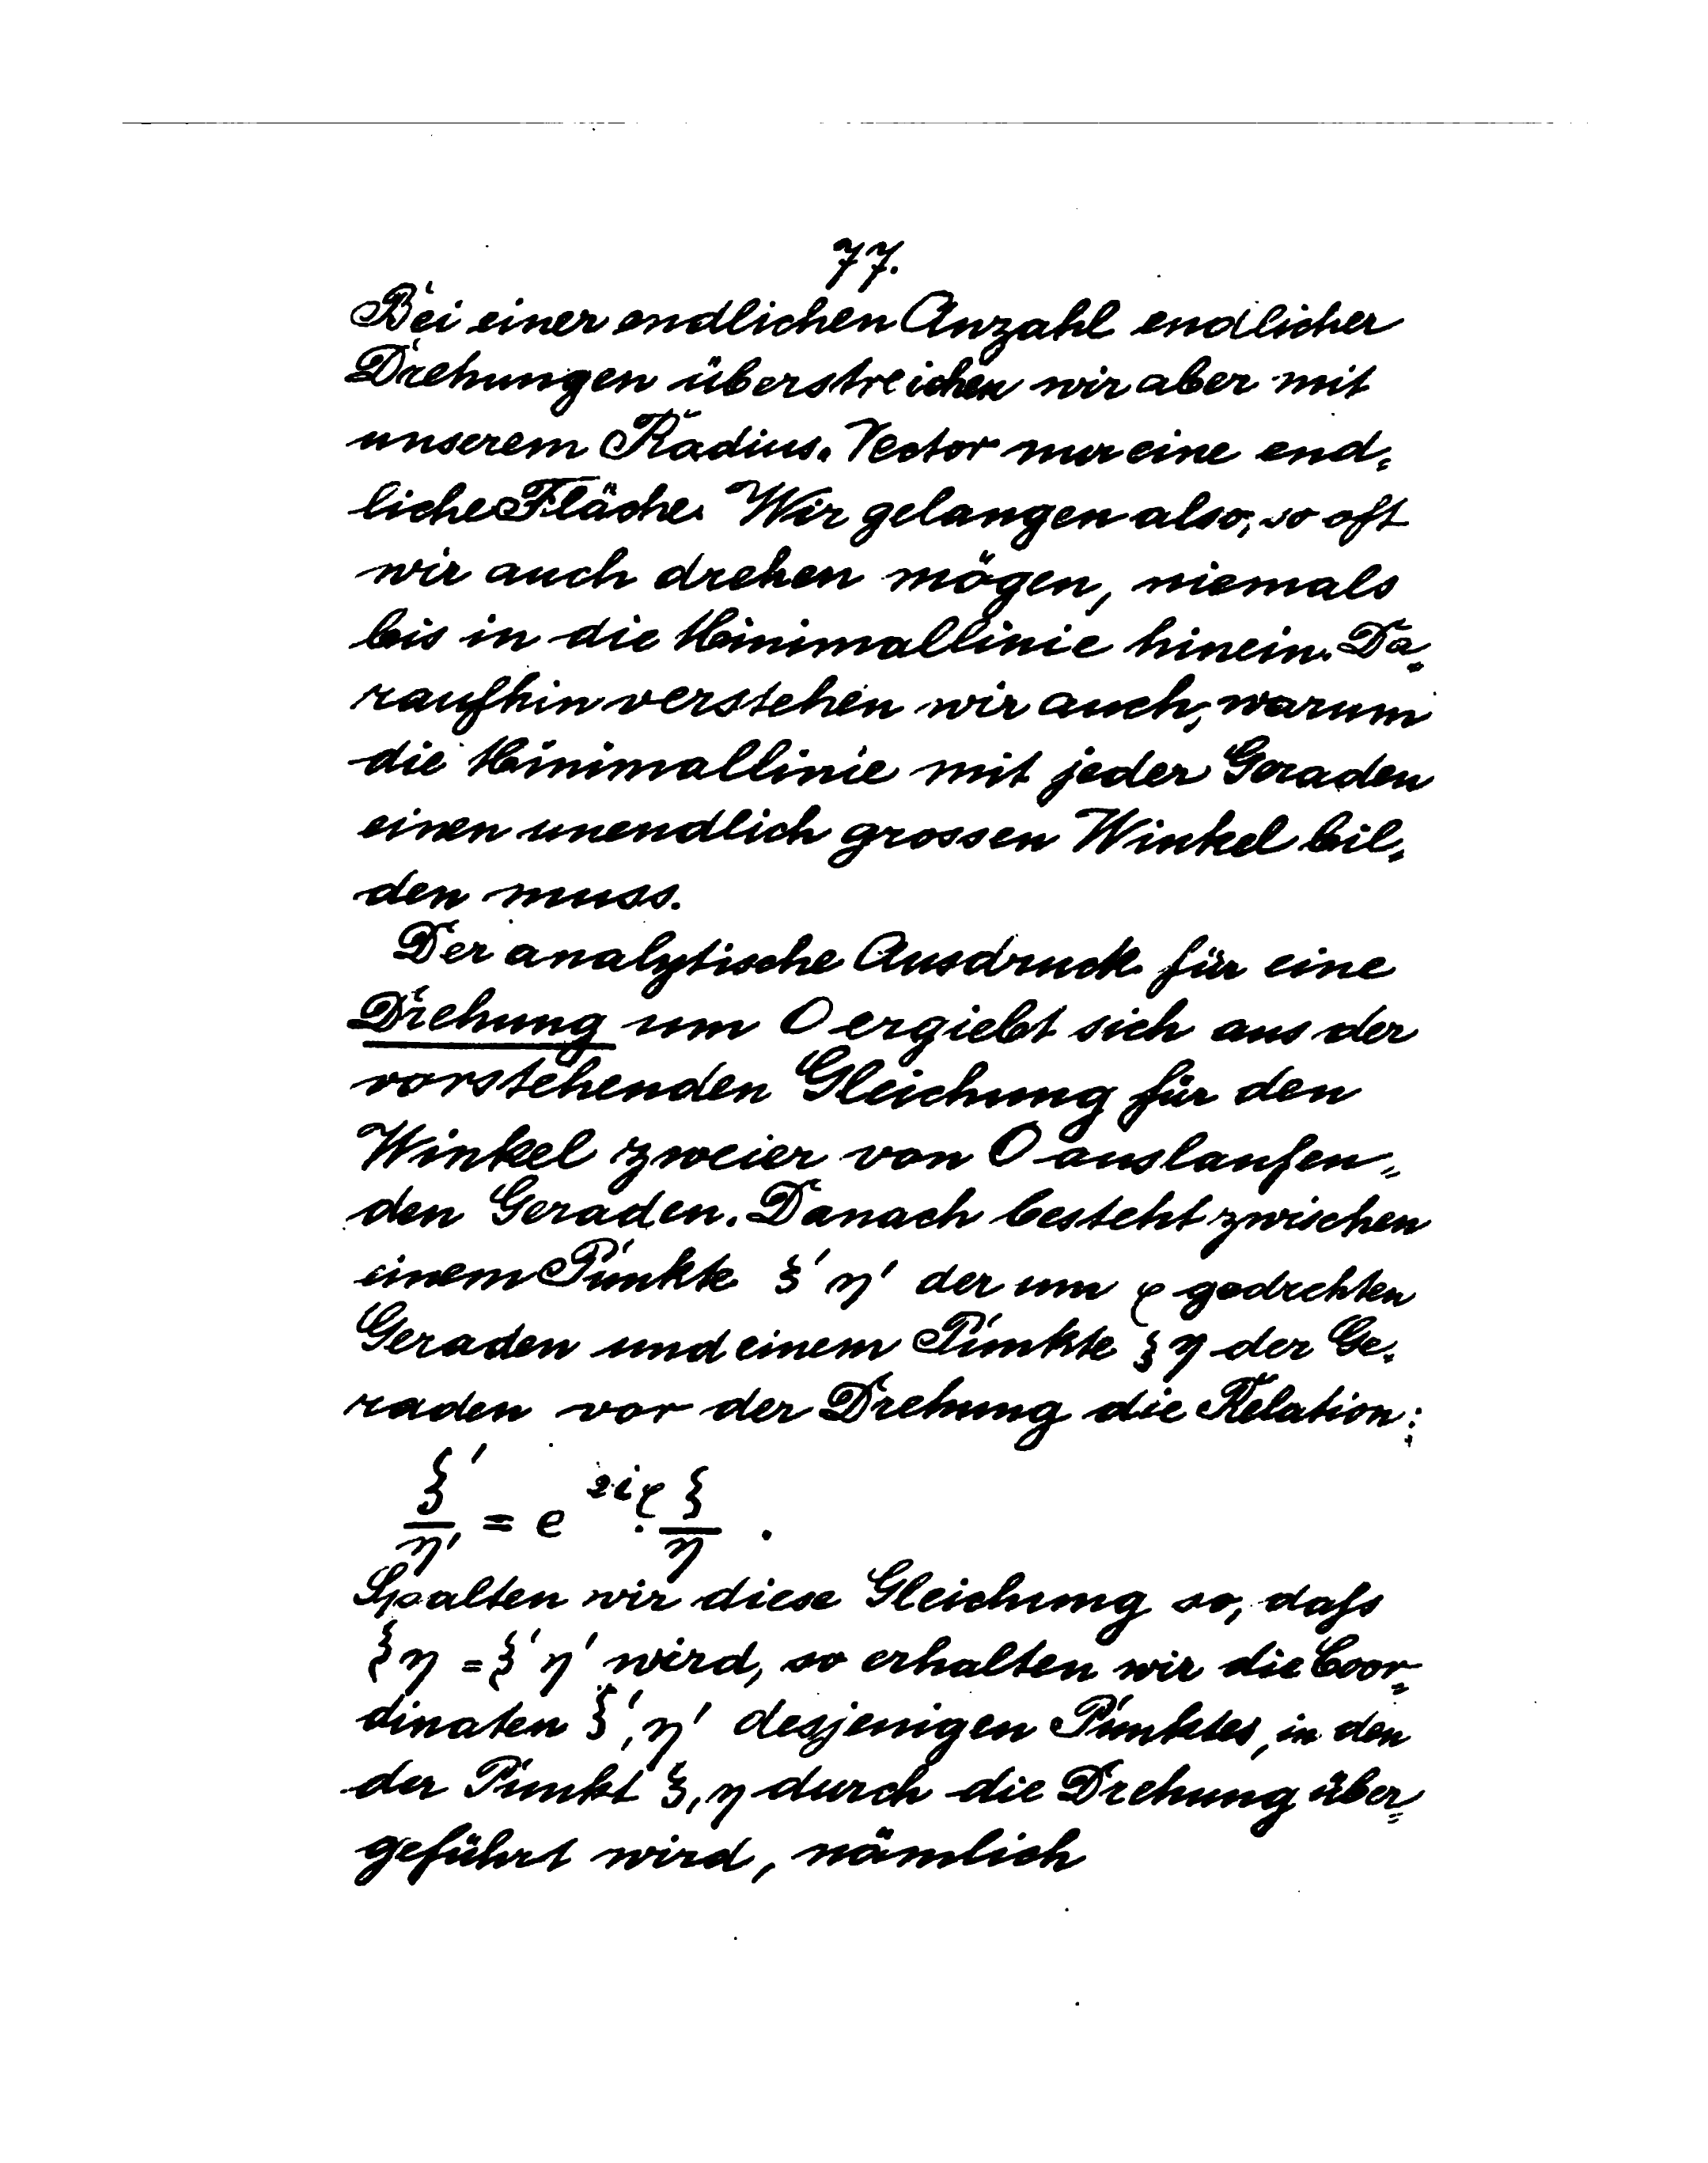 77.
Bei einer endlichen Anzahl endlicher
Drehungen überstreichen wir aber mit
unserem Radius-Vector nur eine end-
liche Fläche. Wir gelangen also, so oft
wir auch drehen mögen, niemals
bis in die Minimallinie hinein. Da-
raufhin verstehen wir auch, warum
die Minimallinie mit jeder Geraden
einen unendlich grossen Winkel bil-
den muss.
Der analytische Ausdruck für eine
Drehung um O ergiebt sich aus der
vorstehenden Gleichung für den
Winkel zweier von O auslaufen-
den Geraden. Danach besteht zwischen
einem Punkte ξ' η' der um φ gedrehten
Geraden und einem Punkte ξ η der Ge-
raden vor der Drehung die Relation:
ξ'/η' = e^{2iφ} · ξ/η .
Spalten wir diese Gleichung so, daſs
ξ η = ξ' η' wird, so erhalten wir die Coor-
dinaten ξ', η' desjenigen Punktes, in den
der Punkt ξ, η durch die Drehung über-
geführt wird, nämlich